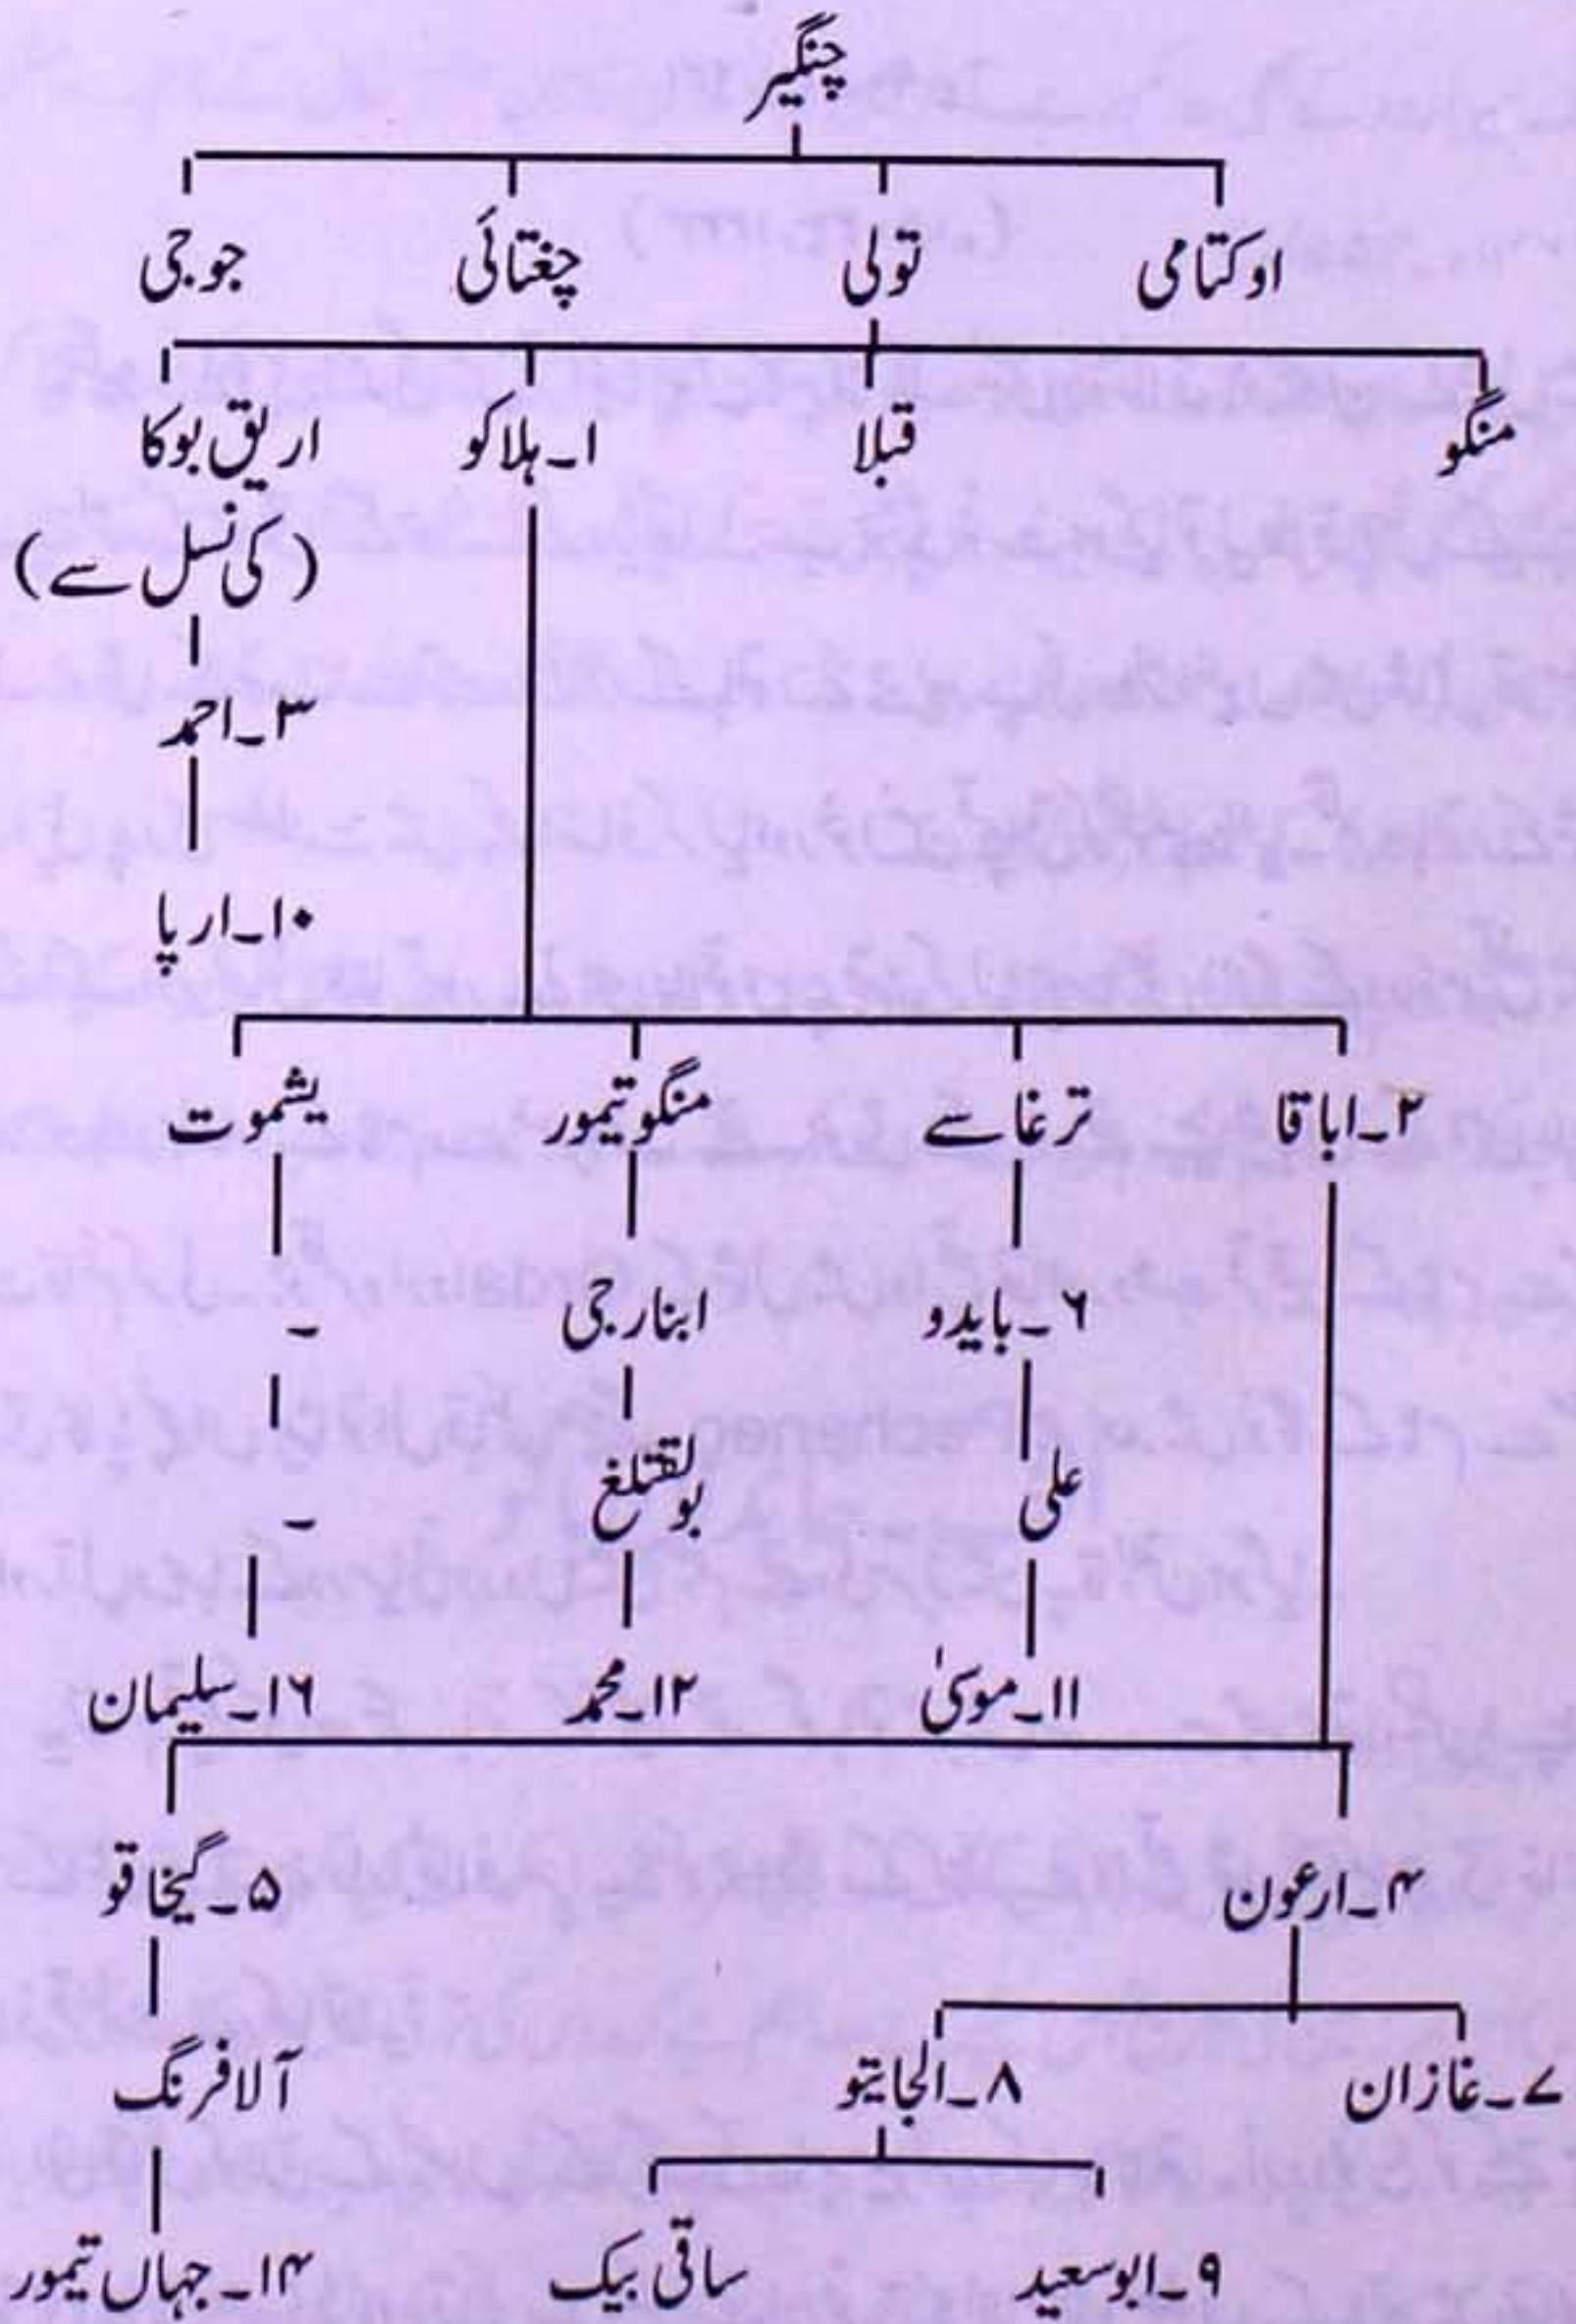 چنگیر
اوکتامی تولی چغتائی جوجی
منگو قبلا ۱۔ہلاکو اریق بوکا
(کی نسل سے)
۳۔احمد
۱۰۔ارپا
۲۔اباقا ترغاسے منگوتیمور یشموت
۶۔بایدو ابنارجی -
علی بولقتلغ -
۱۱۔موسیٰ ۱۲۔محمد ۱۶۔سلیمان
۴۔ارعون ۵۔گیخاقو
۷۔غازان ۸۔الجایتو آلافرنگ
۹۔ابوسعید ساقی بیک ۱۴۔جہاں تیمور